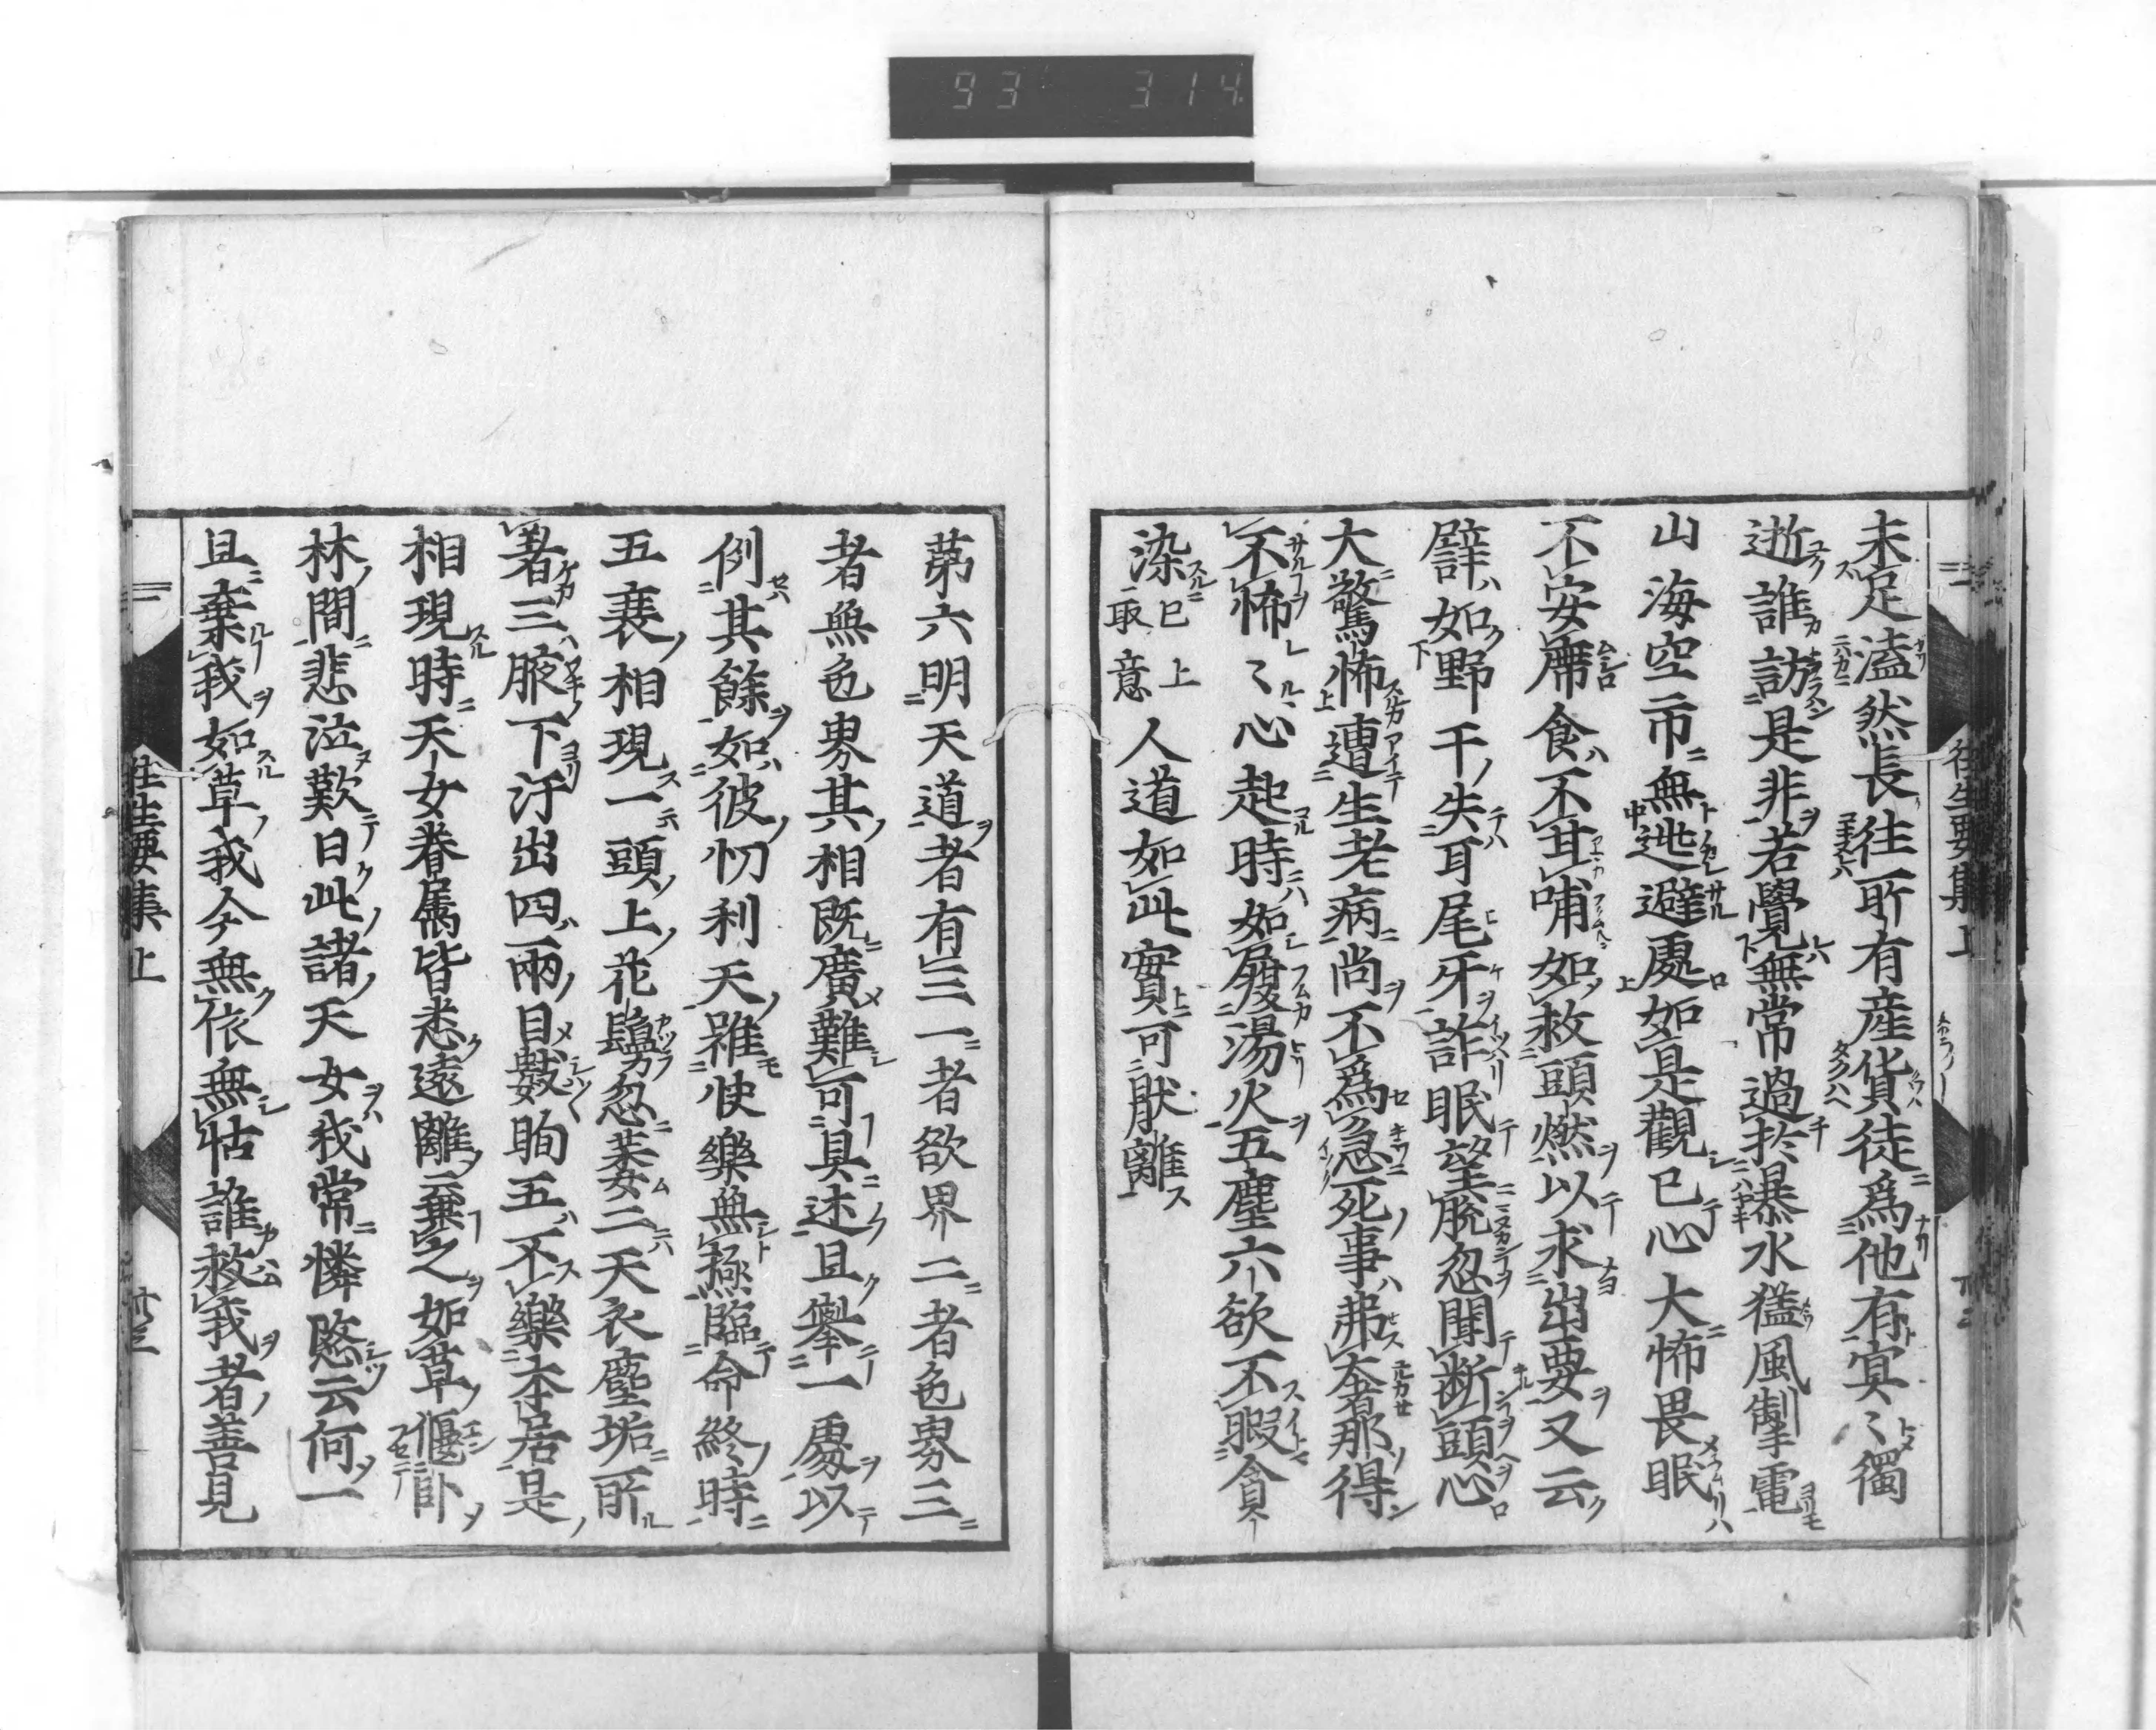 93 314
未足溘然長往所有産貨徒爲他有冥〻獨
逝誰訪是非若覺無常過於暴水猛風掣電
山海空市無逃避處如是觀已心大怖畏眠
不安席食不甘哺如救頭燃以求出要又云
譬如野干失耳尾牙詐眠望脱忽聞断頭心
大驚怖遭生老病尚不爲急死事弗奢那得
不怖〻心起時如履湯火五塵六欲不暇貪
染已上取意人道如此實可厭離
第六明天道者有三一者欲界二者色界三
者無色界其相既廣難可具述且擧一處以
例其餘如彼忉利天雖快樂無極臨命終時
五衰相現一頭上花鬘忽萎二天衣塵垢所
著三腋下汗出四兩目數眴五不樂本居是
相現時天女眷属皆悉遠離棄之如草偃卧
林間悲泣歎曰此諸天女我常憐愍云何一
且棄我如草我今無依無怙誰救我者善見
往生要集上